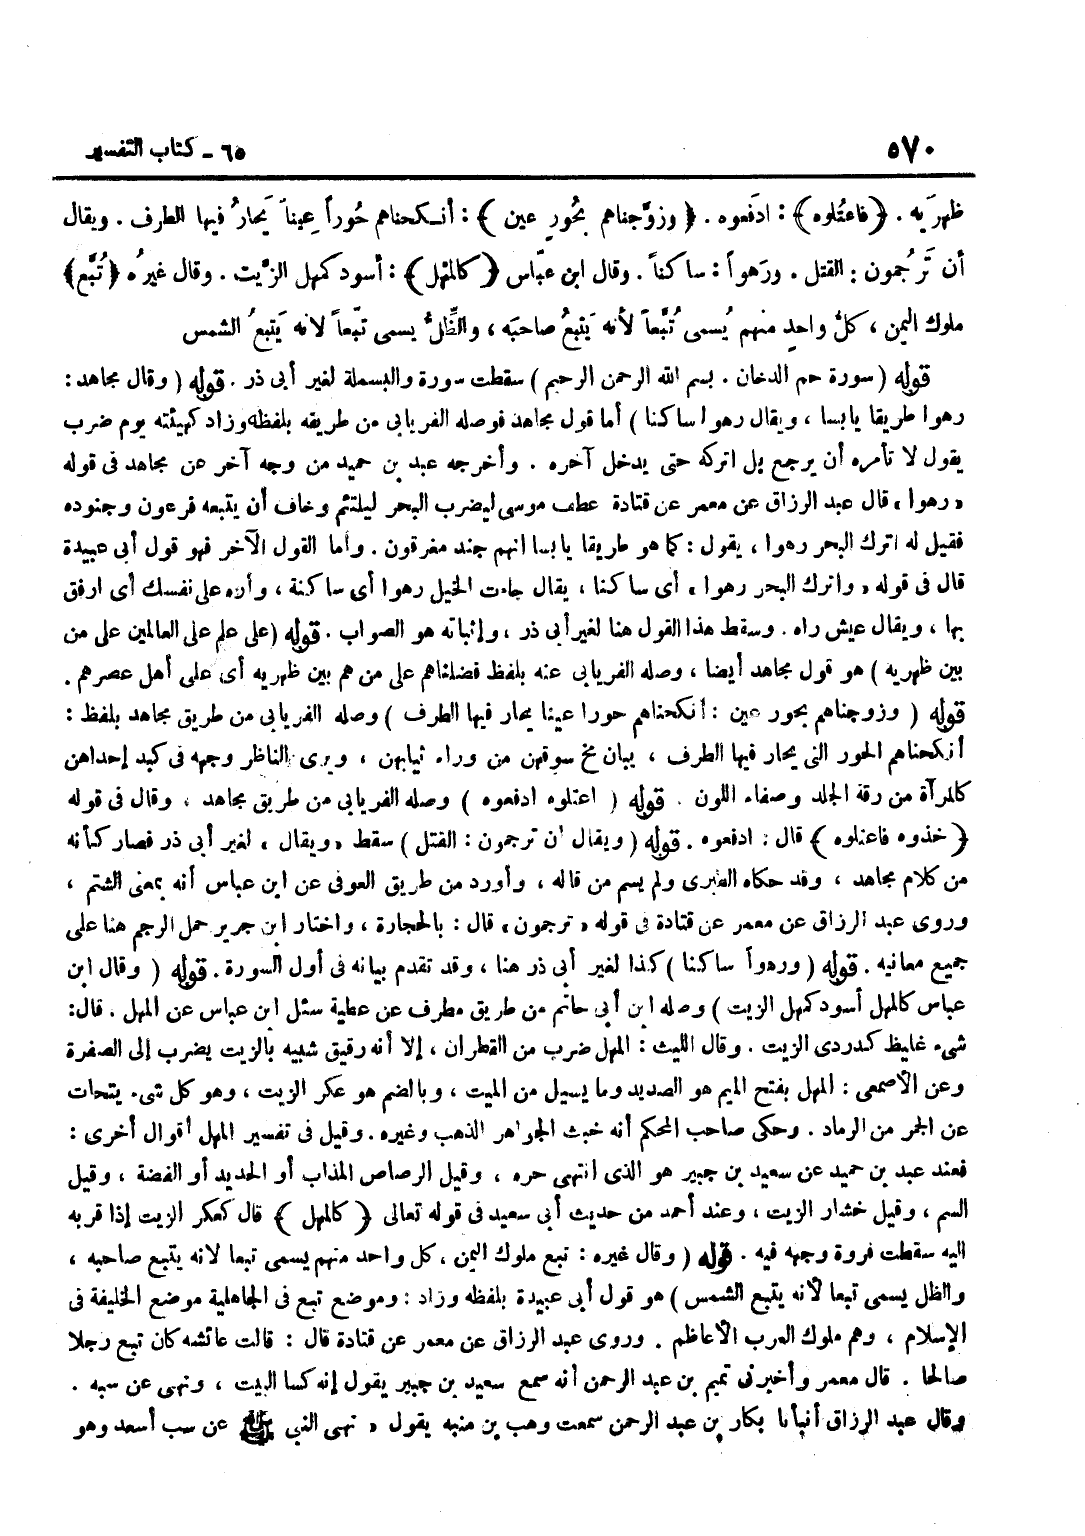 ٥٧٠
٦٥ - كتاب التفسير
ظهرَيه . ﴿ فاعتُلوه ﴾ : ادفَعوه . ﴿ وزوَّجناهم بحُورٍ عين ﴾ : أنـكحناهم حُوراً عِيناً يَحارُ فيها الطرف . ويقال
أن تَرُجمون : القتل . ورَهواً : ساكناً . وقال ابن عبّاس ﴿ كالمُهل ﴾ : أسود كمهل الزَّيت . وقال غيرُه ﴿ تُبَّع ﴾
ملوك اليمن ، كلُّ واحدٍ منهم يُسمى تُبَّعاً لأنه يَتبعُ صاحبَه ، والظِّلُّ يسمى تبّعاً لانه يَتبعُ الشمس
قوله ( سورة حم الدخان . بسم الله الرحمن الرحيم ) سقطت سورة والبسملة لغير أبى ذر . قوله ( وقال مجاهد :
رهوا طريقا يابسا ، ويقال رهوا ساكنا ) أما قول مجاهد فوصله الفريابى من طريقه بلفظه وزاد كهيئته يوم ضرب
يقول لا تأمره أن يرجع بل اتركه حتى يدخل آخره . وأخرجه عبد بن حميد من وجه آخر عن مجاهد فى قوله
« رهوا » قال عبد الرزاق عن معمر عن قتادة عطف موسى ليضرب البحر ليلتئم وخاف أن يتبعه فرعون وجنوده
فقيل له اترك البحر رهوا ، يقول : كما هو طريقا يابسا انهم جند مغرقون . وأما القول الآخر فهو قول أبى عبيدة
قال فى قوله « واترك البحر رهوا » أى ساكنا ، يقال جاءت الخيل رهوا أى ساكنة ، وأره على نفسك أى ارفق
بها ، ويقال عيش راه . وسقط هذا القول هنا لغير أبى ذر ، وإثباته هو الصواب . قوله ( على علم على العالمين على من
بين ظهريه ) هو قول مجاهد أيضا ، وصله الفريابى عنه بلفظ فضلناهم على من هم بين ظهريه أى على أهل عصرهم .
قوله ( وزوجناهم بحور عين : أنكحناهم حورا عينا يحار فيها الطرف ) وصله الفريابى من طريق مجاهد بلفظ :
أنكحناهم الحور التى يحار فيها الطرف ، يبان مخ سوقهن من وراء ثيابهن ، ويرى الناظر وجهه فى كبد إحداهن
كالمرآة من رقة الجلد وصفاء اللون . قوله ( اعتلوه ادفعوه ) وصله الفريابى من طريق مجاهد ، وقال فى قوله
﴿ خذوه فاعتلوه ﴾ قال : ادفعوه . قوله ( ويقال أن ترجمون : القتل ) سقط « ويقال » لغير أبى ذر فصار كأنه
من كلام مجاهد ، وقد حكاه الطبرى ولم يسم من قاله ، وأورد من طريق العوفى عن ابن عباس أنه بمعنى الشتم ،
وروى عبد الرزاق عن معمر عن قتادة فى قوله « ترجمون » قال : بالحجارة ، واختار ابن جرير حمل الرجم هنا على
جميع معانيه . قوله ( ورهواً ساكنا ) كذا لغير أبى ذر هنا ، وقد تقدم بيانه فى أول السورة . قوله ( وقال ابن
عباس كالمهل أسود كمهل الزيت ) وصله ابن أبى حاتم من طريق مطرف عن عطية سئل ابن عباس عن المهل . قال :
شىء غليظ كدردى الزيت . وقال الليث : المهل ضرب من القطران ، إلا أنه رقيق شبيه بالزيت يضرب إلى الصفرة
وعن الأصمعى : المهل بفتح الميم هو الصديد وما يسيل من الميت ، وبالضم هو عكر الزيت ، وهو كل شىء يتحات
عن الجمر من الرماد . وحكى صاحب المحكم أنه خبث الجواهر الذهب وغيره . وقيل فى تفسير المهل أقوال أخرى :
فعند عبد بن حميد عن سعيد بن جبير هو الذى انتهى حره ، وقيل الرصاص المذاب أو الحديد أو الفضة ، وقيل
السم ، وقيل خشار الزيت ، وعند أحمد من حديث أبى سعيد فى قوله تعالى ﴿ كالمهل ﴾ قال كعكر الزيت إذا قربه
اليه سقطت فروة وجهه فيه . قوله ( وقال غيره : تبع ملوك اليمن ، كل واحد منهم يسمى تبعا لانه يتبع صاحبه ،
والظل يسمى تبعا لأنه يتبع الشمس ) هو قول أبى عبيدة بلفظه وزاد : وموضع تبع فى الجاهلية موضع الخليفة فى
الإسلام ، وهم ملوك العرب الأعاظم . وروى عبد الرزاق عن معمر عن قتادة قال : قالت عائشه كان تبع رجلا
صالحا . قال معمر وأخبرنى تميم بن عبد الرحمن أنه سمع سعيد بن جبير يقول إنه كسا البيت ، ونهى عن سبه .
وقال عبد الرزاق أنبأنا بكار بن عبد الرحمن سمعت وهب بن منبه يقول « نهى النبي ﷺ عن سب أسعد وهو